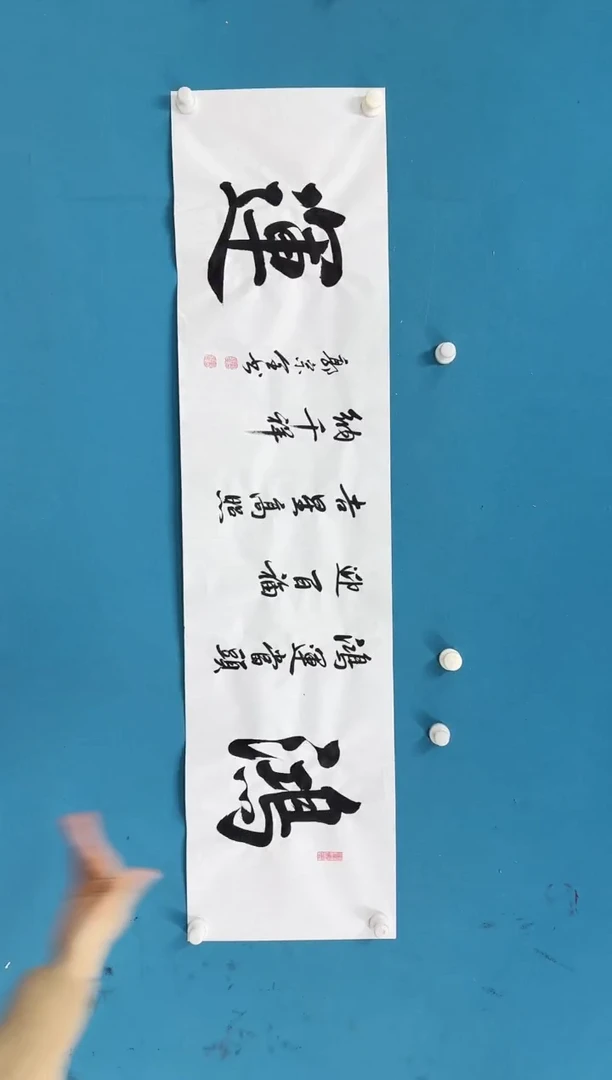 鴻
鴻運當頭
迎百福
吉星高照
納千祥
運